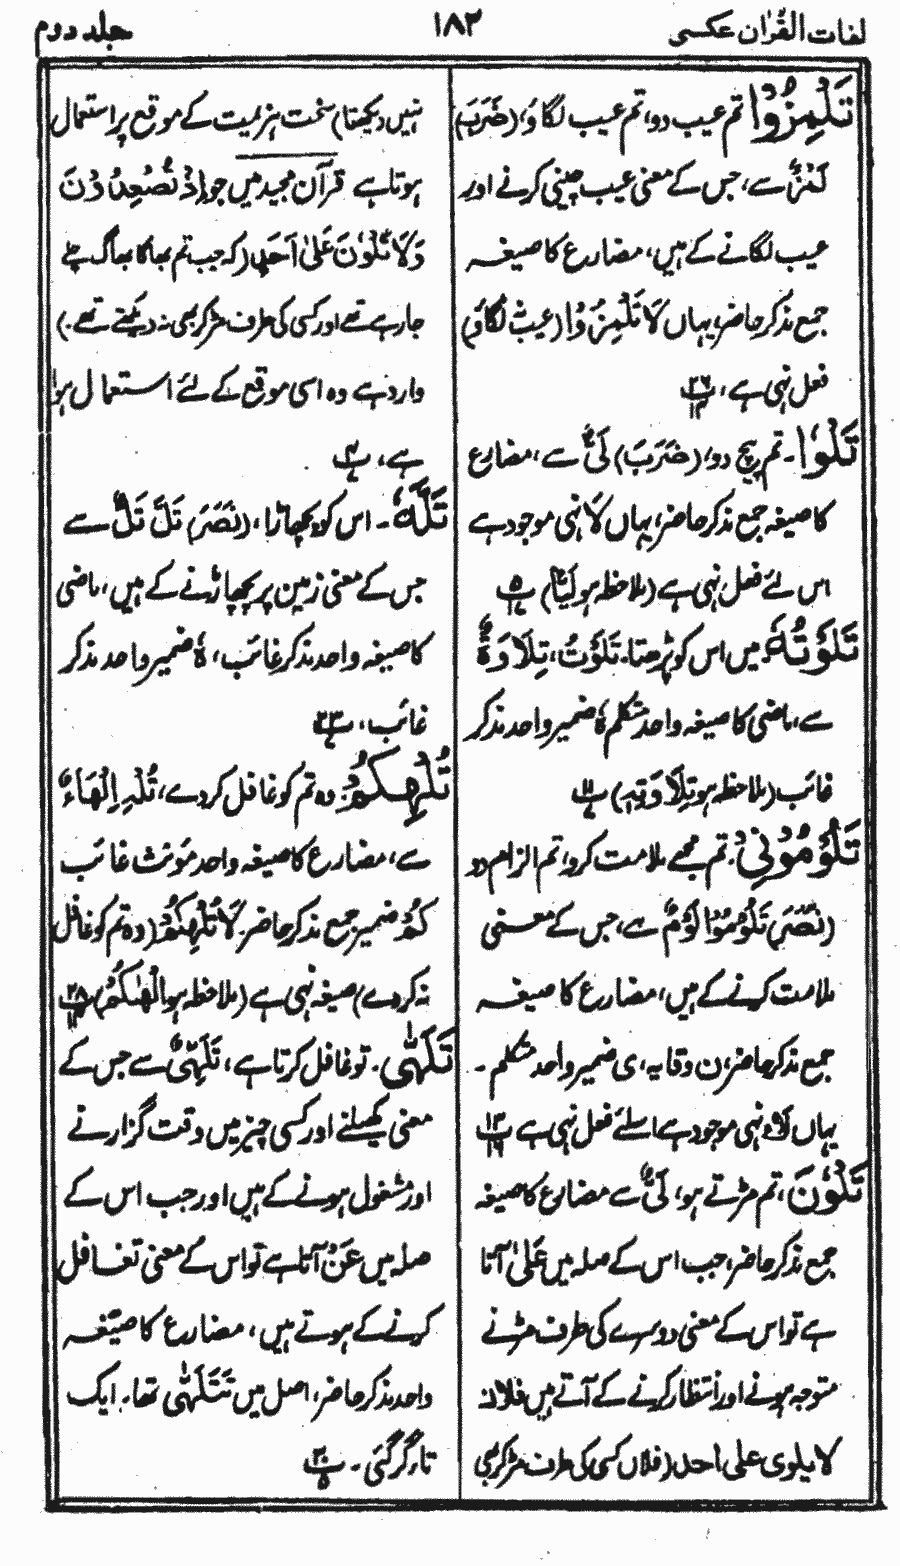 لغات القرآن عکسی
۱۸۲
جلد دوم
تَلْمِزُوْا تم عیب دو، تم عیب لگاؤ، (ضَرَبَ)
لَمْزٌ سے، جس کے معنی عیب چینی کرنے اور
عیب لگانے کے ہیں، مضارع کا صیغہ
جمع مذکر حاضر، یہاں لَا تَلْمِزُوْا (عیب نہ لگاؤ)
فعل نہی ہے، پ۲۶ ۱۴
تَلْوٗا۔ تم پیچ دو، (ضَرَبَ) لَیٌّ سے، مضارع
کا صیغہ جمع مذکر حاضر، یہاں لَا نہی موجود ہے
اس لئے فعل نہی ہے (ملاحظہ ہو لَیًّا) پ۵ ۱۷
تَلَوْتُہٗ۔ میں اس کو پڑھتا۔ تَلَوْتُ، تِلَاوَۃٌ
سے، ماضی کا صیغہ واحد متکلم ہٗ ضمیر واحد مذکر
غائب (ملاحظہ ہو تِلَاوَتِہٖ) پ۱۱ ۷
تَلُوْمُوْنِیْ۔ تم مجھے ملامت کرو، تم الزام دو
(نَصَرَ) تَلُوْمُوْا لَوْمٌ سے، جس کے معنی
ملامت کرنے کے ہیں، مضارع کا صیغہ
جمع مذکر حاضر، ن وقایہ، ی ضمیر واحد متکلم۔
یہاں لَا نہی موجود ہے اسلئے فعل نہی ہے پ۱۳ ۱۶
تَلْوٗنَ، تم مڑتے ہو، لَیٌّ سے مضارع کا صیغہ
جمع مذکر حاضر، جب اس کے صلہ میں عَلٰی آتا
ہے تو اس کے معنی دوسرے کی طرف مڑنے
متوجہ ہونے اور انتظار کرنے کے آتے ہیں فلان
لا یلوی علی احد (فلاں کسی کی طرف مڑ کر بھی
نہیں دیکھتا) سخت ہزیمت کے موقع پر استعمال
ہوتا ہے قرآن مجید میں جو اِذْ تُصْعِدُوْنَ
وَلَا تَلْوٗنَ عَلٰی اَحَدٍ (کہ جب تم بھاگا بھاگ چلے
جا رہے تھے اور کسی کی طرف مڑ کر بھی نہ دیکھتے تھے۔)
وارد ہے وہ اسی موقع کے لئے استعمال ہوا
ہے، پ۴ ۷
تَلَّہٗ۔ اس کو پچھاڑا، (نَصَرَ) تَلَّ تَلٌّ سے
جس کے معنی زمین پر پچھاڑنے کے ہیں، ماضی
کا صیغہ واحد مذکر غائب، ہٗ ضمیر واحد مذکر
غائب، پ۲۳ ۷
تُلْہِکُمْ۔ وہ تم کو غافل کر دے، تُلْہِ اِلْہَاءٌ
سے، مضارع کا صیغہ واحد مؤنث غائب
کُمْ ضمیر جمع مذکر حاضر۔ لَا تُلْہِکُمْ (وہ تم کو غافل
نہ کر دے) صیغہ نہی ہے (ملاحظہ ہو اَلْہٰىکُمْ) پ۲۸ ۱۴
تَلَہّٰی۔ تو غافل کرتا ہے، تَلَہِّیٌ سے جس کے
معنی کھیلنے اور کسی چیز میں وقت گزارنے
اور مشغول ہونے کے ہیں اور جب اس کے
صلہ میں عَنْ آتا ہے تو اس کے معنی تغافل
کرنے کے ہوتے ہیں، مضارع کا صیغہ
واحد مذکر حاضر، اصل میں تَتَلَہّٰی تھا۔ ایک
تاء گر گئی۔ پ۳۰ ۵